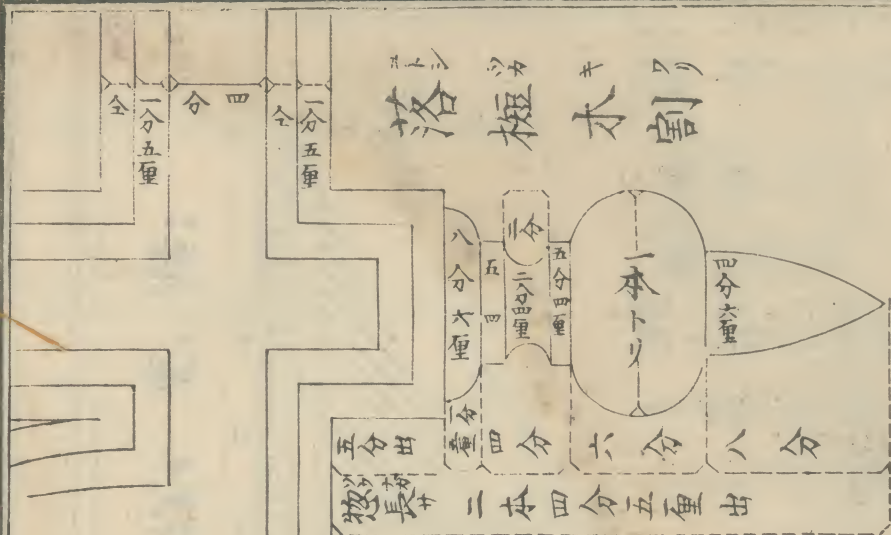 落掛木割
全
一分五厘
四分
全
一分五厘
八分六厘
五四
二分
二分四厘
五分四厘
一本
四分六厘
五分出
四分
六分
八分
惣長サ 二本四分五厘出